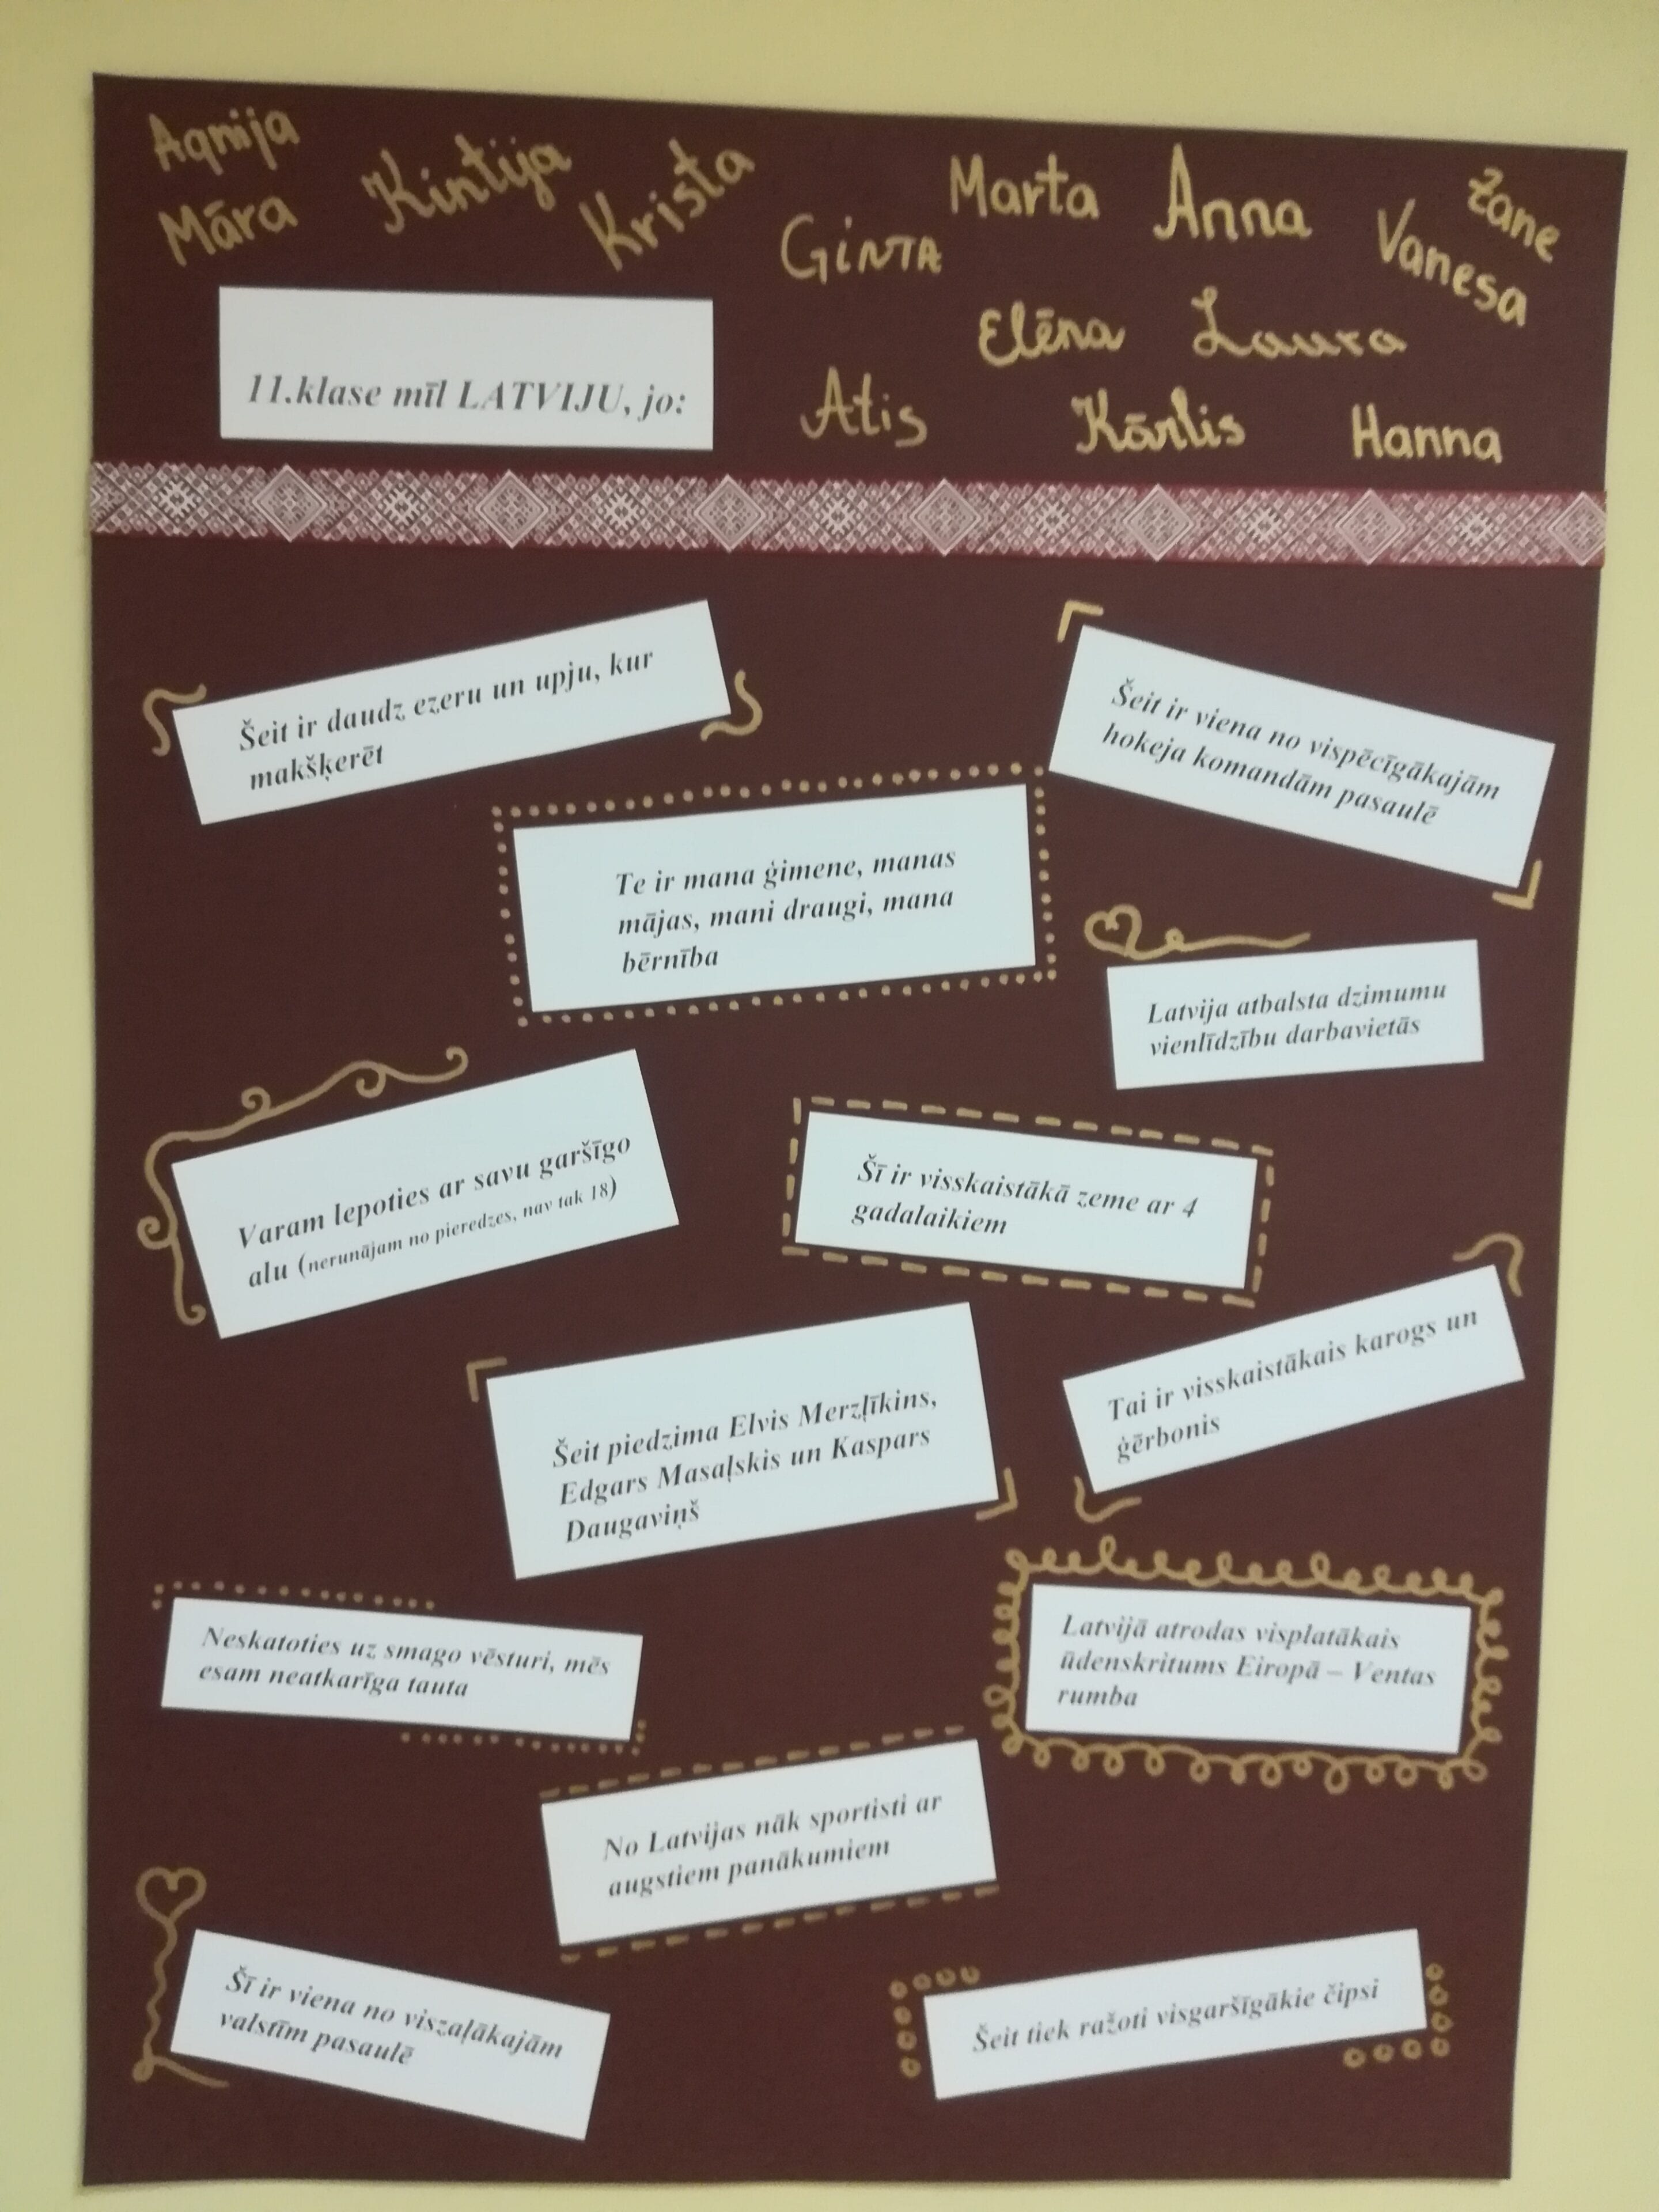 Agnija
Māra
Kintija
Krista
GiNTA
Marta
Anna
Zane
Vanesa
Elēna
Laura
Atis
Kārlis
Hanna
11.klase mīl LATVIJU, jo:
Šeit ir daudz ezeru un upju, kur
makšķerēt
Šeit ir viena no vispēcīgākajām
hokeja komandām pasaulē
Te ir mana ģimene, manas
mājas, mani draugi, mana
bērnība
Latvija atbalsta dzimumu
vienlīdzību darbavietās
Varam lepoties ar savu garšīgo
alu (nerunājam no pieredzes, nav tak 18)
Šī ir visskaistākā zeme ar 4
gadalaikiem
Šeit piedzima Elvis Merzļīkins,
Edgars Masaļskis un Kaspars
Daugaviņš
Tai ir visskaistākais karogs un
ģērbonis
Neskatoties uz smago vēsturi, mēs
esam neatkarīga tauta
Latvijā atrodas visplatākais
ūdenskritums Eiropā – Ventas
rumba
No Latvijas nāk sportisti ar
augstiem panākumiem
Šī ir viena no viszaļākajām
valstīm pasaulē
Šeit tiek ražoti visgaršīgākie čipsi